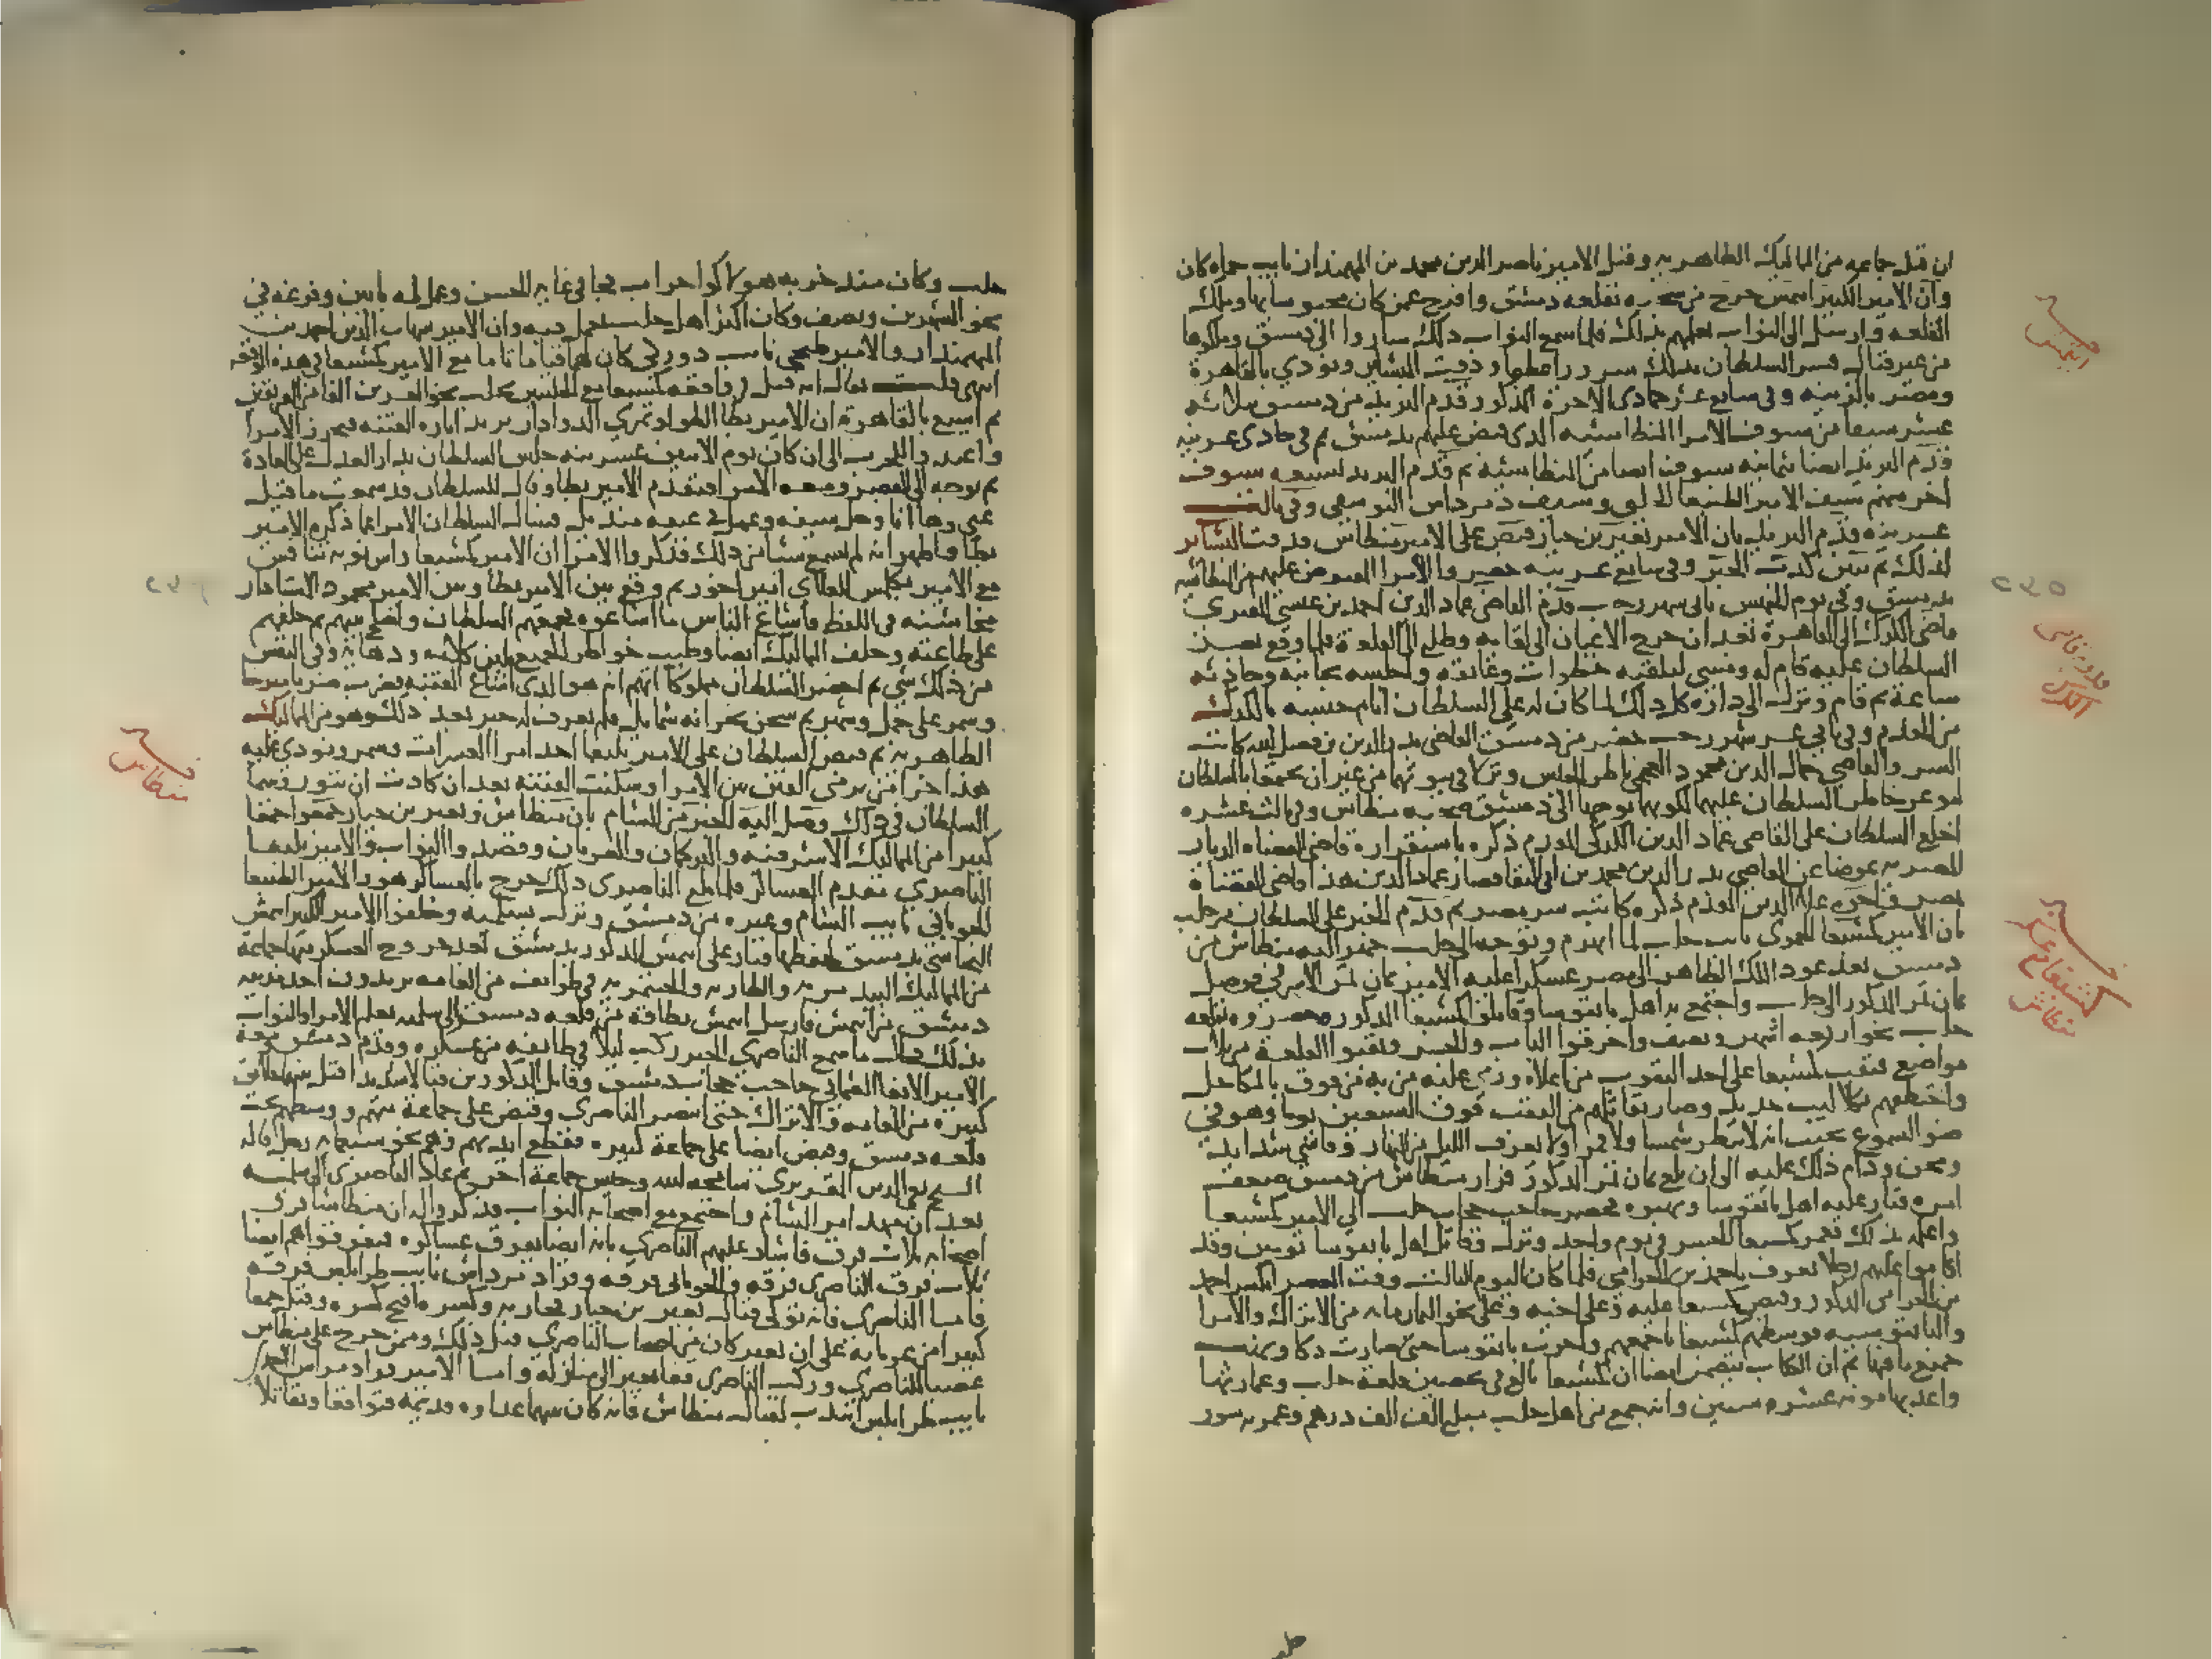 ان قتل جماعه من المماليك الظاهريه وقتل الامير ناصر الدين محمد بن المهمندار نايب حماه كان
وان الامير الكبير ايتمش خرج من سجنه بقلعه دمشق وافرج عمن كان محبوسا بها وملك
القلعه وارسل الى النواب يعلمهم بذلك فلما سمع النواب ذلك ساروا الى دمشق وملكوها
من غير قتال فسر السلطان بذلك سرورا عظيما ودقت البشاير ونودي بالقاهرة
ومصر بالزينه وفي سابع عشر جمادى الاخرة المذكور قدم البريد من دمشق بثلاثه
عشر سيفا من سيوف الامرا المنطاشيه الذي قبض عليهم بدمشق ثم في حادي عشرينه
قدم البريد ايضا بثمانيه سيوف ايضا من المنطاشيه ثم قدم البريد بسبعه سيوف
اخر منهم سيف الامير الطنبغا وسيف دمرداش اليوسفي وفي ثالث
عشرينه قدم البريد بان الامير نعير بن حيار قبض على الامير منطاش فدقت البشاير
لذلك ثم تبين كذب الخبر وفي سابع عشرينه حضروا الامرا المقبوض عليهم من المنطاشيه
بدمشق وفي يوم الخميس ثاني شهر رجب قدم القاضي عماد الدين احمد بن عيسى المقيري
قاضي الكرك الى القاهرة بعد ان خرج الاعيان الى لقايه وطلع الى القلعة فلما وقع بصر
السلطان عليه قام له ومشى لتلقيه خطوات وعانقه واجلسه بجانبه وحادثه
ساعة ثم قام ونزل الى داره كل ذلك لما كان له على السلطان ايام حبسه بالكرك
من الخدم وفي ثاني عشر شهر رجب حضر من دمشق القاضي بدر الدين بن فضل الله كاتب
السر والقاضي جمال الدين محمود العجمي ناظر الجيش ونزلا في بيوتهما من غير ان يجتمعا بالسلطان
لتوعر خاطر السلطان عليهما لكونهما توجها الى دمشق صحبه منطاش وفي ثالث عشره
اخلع السلطان على القاضي عماد الدين الكركي المقدم ذكره باستقراره قاضي القضاه بالديار
المصريه عوضا عن القاضي بدر الدين محمد بن ابي البقا فصار عماد الدين هذا قاضي القضاة
بمصر واخوه علاء الدين المقدم ذكره كاتب سر بمصر ثم قدم الخبر على السلطان من حلب
بان الامير كمشبغا الحموي نايب حلب لما انهزم وتوجه الى حلب جهز اليه منطاش من
دمشق بعد عود الملك الظاهر الى مصر عسكرا عليه الامير تمان تمر الاشرفي فوصل
تمان تمر المذكور الى حلب واجتمع به اهل بانقوسا وقاتلوا كمشبغا المذكور وحصروه بقلعه
حلب نحوا اربعه اشهر ونصف واحرقوا الباب والجسر ونقبوا القلعة من ثلاث
مواضع فنقب كمشبغا على احد النقوب من اعلاه ورمى عليه من به من فوق بالمكاحل
واختطفهم بكلاليب حديد وصار يقاتلهم من النقب فوق السبعين يوما وهو في
ضو الشموع بحيث انه لا ينظر شمسا ولا قمرا ولا يعرف الليل من النهار وقاسى شدايد
ومحن ودام ذلك عليه الى ان بلغ تمان تمر المذكور فرار منطاش من دمشق فضعف
امره فثار عليه اهل بانقوسا ونهبوه فحضر حاجب حجاب حلب الى الامير كمشبغا
واعلمه بذلك فعمر كمشبغا الجسر في يوم واحد ونزل وقاتل اهل بانقوسا يومين وقد
اقاموا عليهم رجلا يعرف باحمد بن الحرامي فلما كان اليوم الثالث وقت العصر انكسر احمد
بن الحرامي المذكور وقبض كمشبغا عليه وعلى اخيه وعلى نحو الثمان مايه من الاتراك والامرا
والبانقوسيه فوسطهم كمشبغا باجمعهم واخرب بانقوسا حتى صارت دكا ونهب
جميع ما فيها ثم ان الكتاب يتضمن ايضا ان كمشبغا بالغ في تحصين قلعة حلب وعمارتها
واعد بها مونه عشره سنين وانه جمع من اهل حلب مبلغ الف الف درهم وعمر به سور
حلب
ايتمش
قدوم قاضي
الكرك
كمشبغا مع
منطاش
٢٣٥
حلب وكان منذ خربه هولاكوا خراب فجا في غايه الحسن وعمل له بابين وفرغه في
نحو الشهرين ونصف وكان اكثر اهل حلب تعمل فيه وان الامير شهاب الدين احمد بن
المهمندار والامير طغجي نايب دوركي كان لهما قياما تاما مع الامير كمشبغا في هذه الوقعه
انتهى قلت يقال انه قتل في واقعه كمشبغا مع الحلبيين بحلب نحو العشرين الفا من الفريقين
ثم اشيع بالقاهرة ان الامير بطا الطولوتمري الدوادار يريد اثاره الفتنه فتحرز الامرا
واعدوا للحرب الى ان كان يوم الاثنين عشرينه جلس السلطان بدار العدل على العادة
ثم توجه الى القصر ومعه الامرا فتقدم الامير بطا وقال للسلطان قد سمعت ما قيل
عني وها انا وحل سيفه وعمل في عنقه منديل فسال السلطان الامرا عما ذكره الامير
بطا واظهر انه لم يسمع شيا من ذلك فذكروا الامرا ان الامير كمشبغا راس نوبه تنافس
مع الامير بكلمش العلاي امير اخور ثم وقع بين الامير بطا وبين الامير محمود الاستادار
مخاشنه في اللفظ فاشاع الناس ما اشاعوه فجمعهم السلطان واصلح بينهم ثم حلفهم
على طاعته وحلف المماليك ايضا وطيب خواطر الجميع بلين كلامه ودهانه وفي النفس
من ذلك شي ثم احضر السلطان مملوكا اتهم انه هو الذي اشاع الفتنه فضرب ضربا مبرحا
وسمر على جمل وشهر ثم سجن بخزانه شمايل فلم يعرف له خبر بعد ذلك وهو من المماليك
الظاهريه ثم قبض السلطان على الامير يلبغا احد امرا العشرات وسمر ونودي عليه
هذا جزا من يرمي الفتن بين الامرا وسكنت الفتنه بعد ان كادت ان تثور وبينما
السلطان في ذلك وصل اليه الخبر من الشام بان منطاش ونعير بن حيار جمعوا جمعا
كبيرا من المماليك الاشرفيه والتركمان والعربان وقصدوا النواب والامير يلبغا
الناصري مقدم العساكر فلما بلغ الناصري ذلك خرج بالعساكر هو والامير الطنبغا
الجوباني نايب الشام وغيره من دمشق ونزل بسلميه وخلفوا الامير الكبير ايتمش
البجاسي بدمشق لحفظها فثار على ايتمش المذكور بدمشق بعد خروج العسكر منها جماعة
من المماليك البيدمريه والطازيه والجنتمريه في طوايف من العامه يريدون اخذ مدينه
دمشق من ايتمش فارسل ايتمش بطاقة من قلعه دمشق الى سلميه يعلم الامرا والنواب
بذلك فحال ما سمع الناصري الخبر ركب ليلا في طايفه من عسكره وقدم دمشق ومعه
الامير الابغا العثماني حاجب حجاب دمشق وقاتل المذكورين قتالا شديدا قتل بينهما خلايق
كثيره من العامه والاتراك حتى انتصر الناصري وقبض على جماعة منهم ووسطهم تحت
قلعه دمشق وقبض ايضا على جماعة كبيره فقطع ايديهم وهم نحو سبعمايه رجل قاله
الشيخ تقي الدين المقريزي سامحه الله وحبس جماعة اخر ثم عاد الناصري الى سلميه
بعد ان مهد امر الشام واجتمع مع اصحابه النواب فذكروا له ان منطاشا فرق
اصحابه ثلاث فرق فاشار عليهم الناصري بانه ايضا يفرق عساكره فتفرقوا هم ايضا
ثلاث فرق الناصري فرقه والجوباني فرقه وقرا دمرداش نايب طرابلس فرقه
فاما الناصري فانه تولى قتال نعير بن حيار فحاربه وكسره اقبح كسره وقتل جمعا
كبيرا من عربانه على ان نعير كان من اصحاب الناصري قبل ذلك وممن خرج على منطاش
غضبا للناصري وركب الناصري قفا نعير الى منازله واما الامير قرا دمرداش
نايب طرابلس انتدب لقتال منطاش فانه كان بينهما عداوه قديمه فتواقفا وتقاتلا
منطاش
٢٣٦